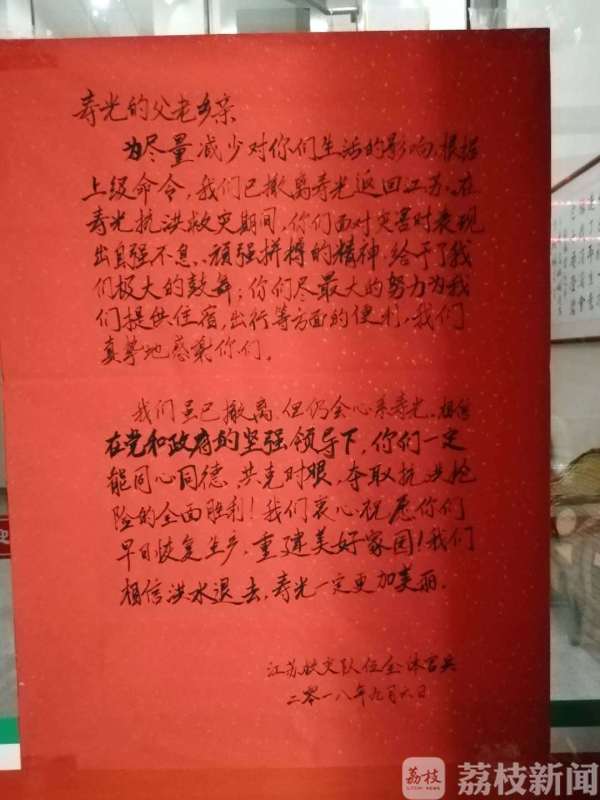 寿光的父老乡亲
为尽量减少对你们生活的影响,根据
上级命令,我们已撤离寿光返回江苏。在
寿光抗洪救灾期间,你们面对灾害时表现
出自强不息、顽强拼搏的精神,给予了我
们极大的鼓舞;你们尽最大的努力为我
们提供住宿,出行等方面的便利,我们
真挚地感谢你们。
我们虽已撤离,但仍会心系寿光。相信
在党和政府的坚强领导下,你们一定
能同心同德,共克时艰,夺取抗洪抢
险的全面胜利!我们衷心祝愿你们
早日恢复生产,重建美好家园!我们
相信洪水退去,寿光一定更加美丽.
江苏救灾队伍全体官兵
二零一八年九月六日
荔枝
荔枝新闻